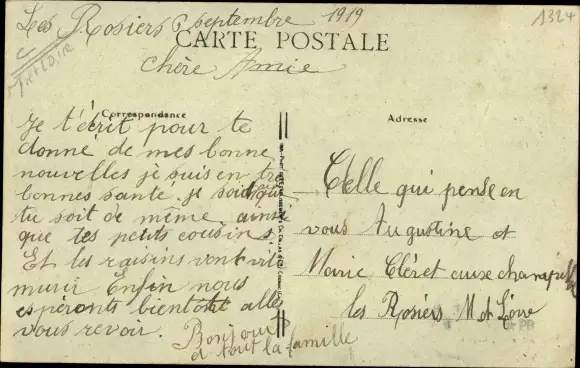 Les Rosiers 6 septembre 1919
1324
CARTE POSTALE
chère Amie
Correspondance
Adresse
Je t'écrit pour te
donne de mes bonne
nouvelles je suis en tre
bonnes santé. je soit que
tu soit de même ainsi
que tes petits cousins
Et les raisins vont vite
murir Enfin nous
espéronts bientôt alle
vous revoir.
Bonjour
a tout la famille
Celle qui pense en
vous Augustine et
Marie Cléret
les Rosiers M et Loire